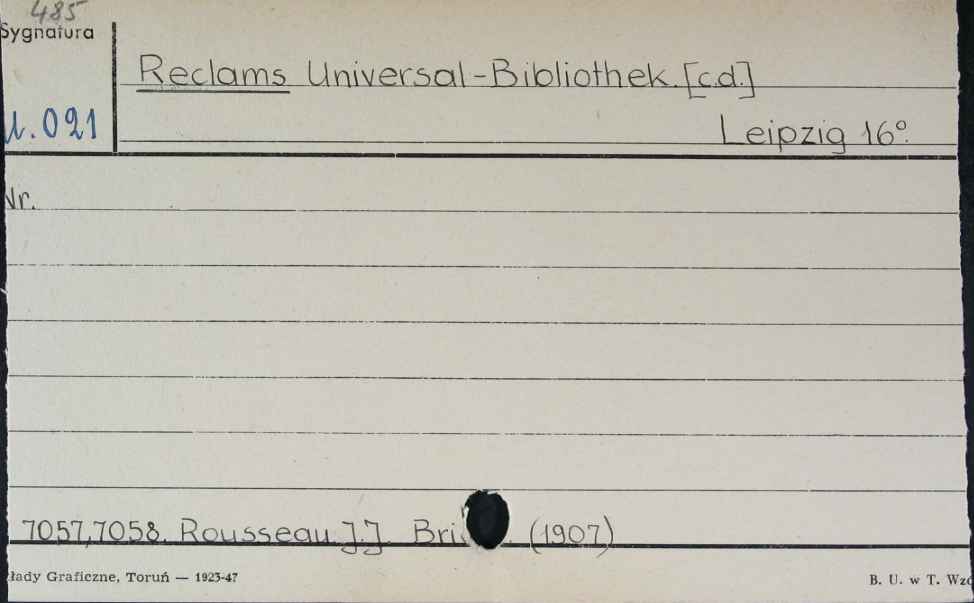 485
Sygnatura
Reclams Universal-Bibliothek. [c.d.]
021
Leipzig 16º.
Nr.
7057,7058. Rousseau J.J. (1907)
łady Graficzne, Toruń — 1923-47
B. U. w T. Wzó